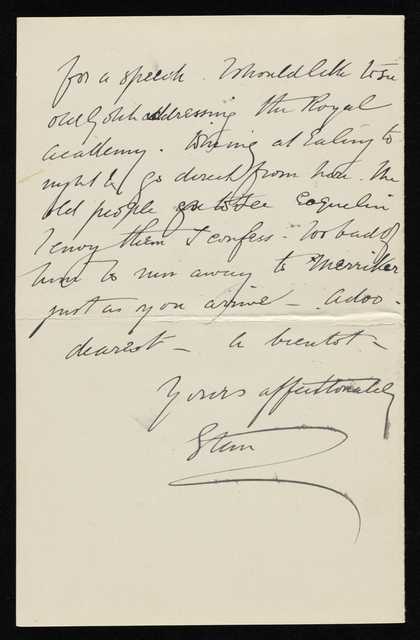 for a speech. I should like to see
old John addressing the Royal
Academy. Dining at Ealing to
night & go direct from here. The
old people go to see Coquelin
I envy them I confess. Too bad of
him to run away to
just as you arrive – adoo –
dearest – a bientot –
Yours affectionately
Stem